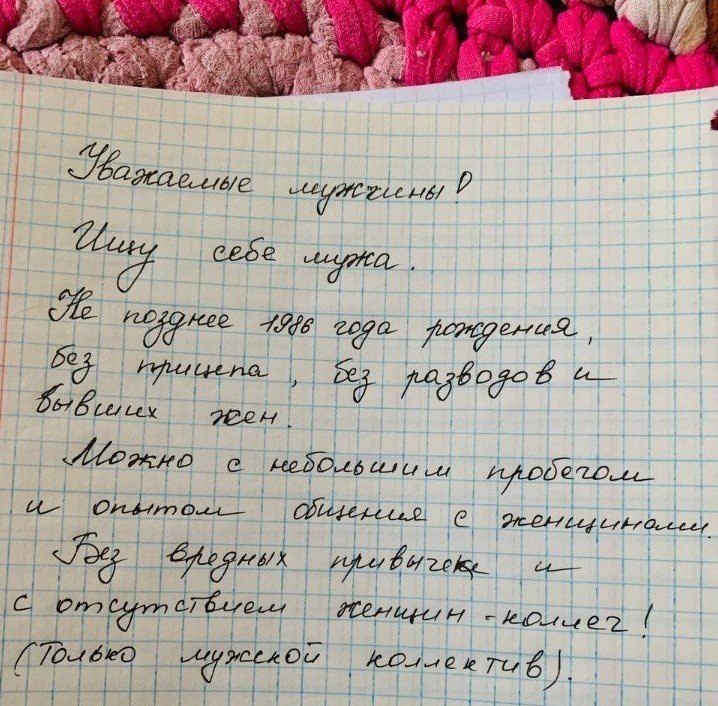 Уважаемые мужчины!
Ищу себе мужа.
Не позднее 1986 года рождения,
без прицепа, без разводов и
бывших жен.
Можно с небольшим пробегом
и опытом общения с женщинами.
Без вредных привычек и
с отсутствием женщин-коллег!
(Только мужской коллектив).